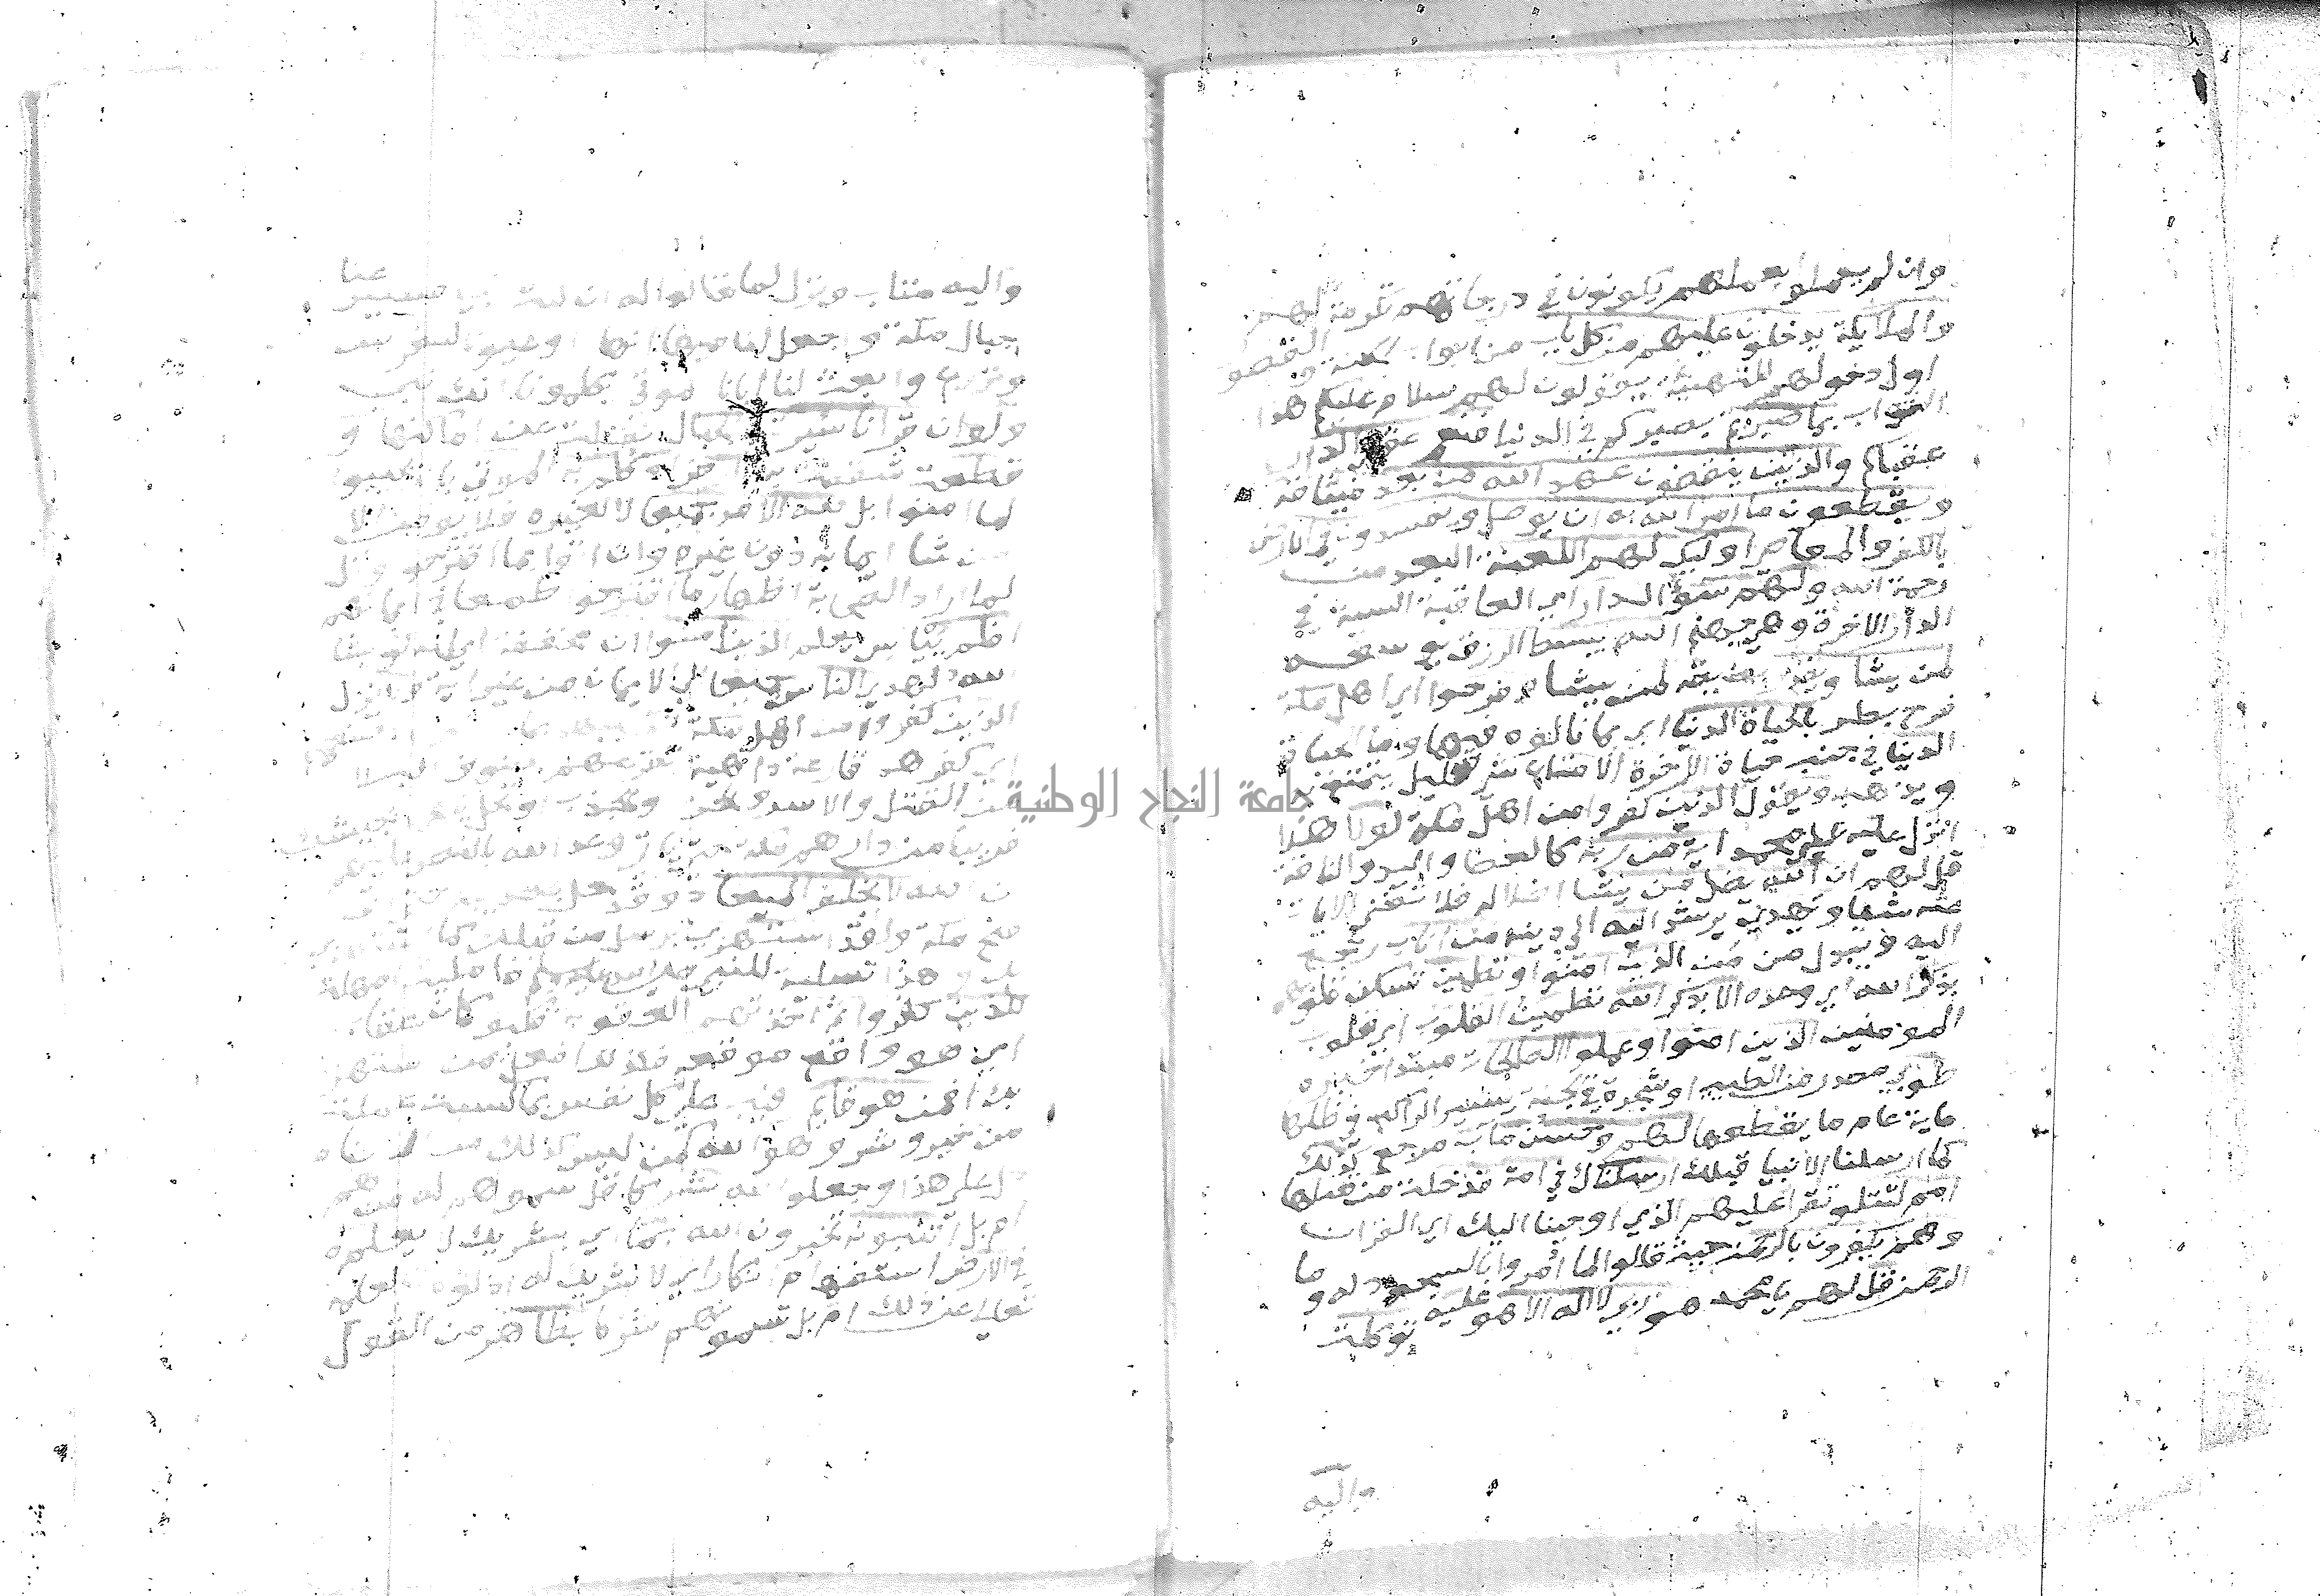 وان لم يعملوا بعملهم يكونون في درجاتهم تكرمة لهم
والملايكة يدخلون عليهم من كل باب من ابواب الجنة و القصور
اول دخولهم للتهنية يقولون لهم سلام عليكم هذا
الثواب بما صبرتم بصبركم في الدنيا فنعم عقبي الدار
عقباكم والذين ينقضون عهد الله من بعد ميثاقه
ويقطعون ما امر الله به ان يوصل ويفسدون في الارض
بالكفر والمعاصي اوليك لهم اللعنة البعد من
رحمة الله ولهم سوء الدار اي العاقبة السيية في
الدار الاخرة وهي جهنم الله يبسط الرزق يوسعه
لمن يشا ويقدر يضيقه لمن يشاء وفرحوا اي اهل مكة
فرح بطر بالحياة الدنيا اي بما نالوه فيها وما الحياة
الدنيا في جنب حياة الاخرة الا متاع شي قليل يتمتع به
ويذهب ويقول الذين كفروا من اهل مكة لولا هلا
انزل عليه علي محمد اية من ربه كالعصا واليد والناقة
قل لهم ان الله يضل من يشا اضلاله فلا تغني الايات
عنه شيا ويهدي يرشد اليه الي دينه من اناب رجع
اليه ويبدل من من الذين امنوا وتطمين تسكن قلوبهم
بذكر الله اي وعده الا بذكر الله تطمين القلوب اي قلوب
المومنين الذين امنوا وعملوا الصالحات مبتدا خبره
طوبي مصدر من الطيب او شجرة في الجنة يسير الراكب في ظلها
ماية عام ما يقطعها لهم وحسن ماب مرجع كذلك
كما ارسلنا الانبيا قبلك ارسلناك في امة قد خلت من قبلها
امم لتتلو تقرا عليهم الذي اوحينا اليك اي القران
وهم يكفرون بالرحمن حيث قالوا لما امروا بالسجود له وما
الرحمن قل لهم يا محمد هو ربي لا اله الا هو عليه توكلت
واليه
واليه متاب ونزل لما قالوا له ان كنت نبيا فسير عنا
جبال مكة واجعل لنا فيها انهارا وعيونا لنغرس
ونزرع وابعث لنا ابانا موتي يكلمونا انك نبي
ولو ان قرانا سيرت به الجبال نقلت عن اماكنها و
قطعت شققت به الارض او كلم به الموتي بان يحيوا
لما امنوا بل لله الامر جميعا لا لغيره فلا يومن الا
من شا ايمانه دون غيره وان اتوا بما اقترحوا ونزل
لما اراد الصحابة اظهار ما اقترحوا طمعا في ايمانهم
افلم ييايس يعلم الذين امنوا ان مخففة اي انه لو يشا
الله لهدي الناس جميعا الي الايمان من غير اية ولا يزال
الذين كفروا من اهل مكة تصيبهم بما صنعوا بصنعهم
اي كفرهم قارعة داهية تقرعهم بصنوف البلا
من القتل والاسر والحرب والجدب او تحل يا محمد بجيشك
قريبا من دارهم مكة حتي ياتي وعد الله بالنصر عليهم
ان الله لا يخلف الميعاد وقد حل بالحديبية حتي اتي
فتح مكة ولقد استهزي برسل من قبلك كما استهزي
بك وهذا تسلية للنبي صلي الله عليه وسلم فامليت امهلت
للذين كفروا ثم اخذتهم بالعقوبة فكيف كان عقاب
اي هو واقع موقعه فكذلك افعل بمن استهزا
بك افمن هو قايم رقيب علي كل نفس بما كسبت عملت
من خير وشر وهو الله كمن ليس كذلك من الاصنام لا
دل علي هذا وجعلوا لله شركا قل سموهم له من هم
ام بل اتنبونه تخبرون الله بما اي بشريك لا يعلمه
في الارض استفهام انكار اي لا شريك له اذ لو كان لعلمه
تعالي عن ذلك ام بل تسمونهم شركا بظاهر من القول
جامعة النجاح الوطنية